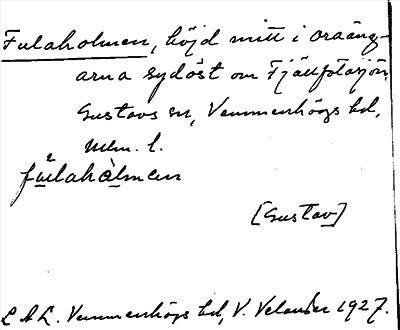 Fulaholmen, höjd mitt i oraäng-
arna sydöst om Fjällfotasjön,
Gustavs sn, Vemmenhögs hd,
Mlm. l.
fúlahàlmen
[Gustav]
L A L. Vemmenhögs hd, V. Velander 1927.